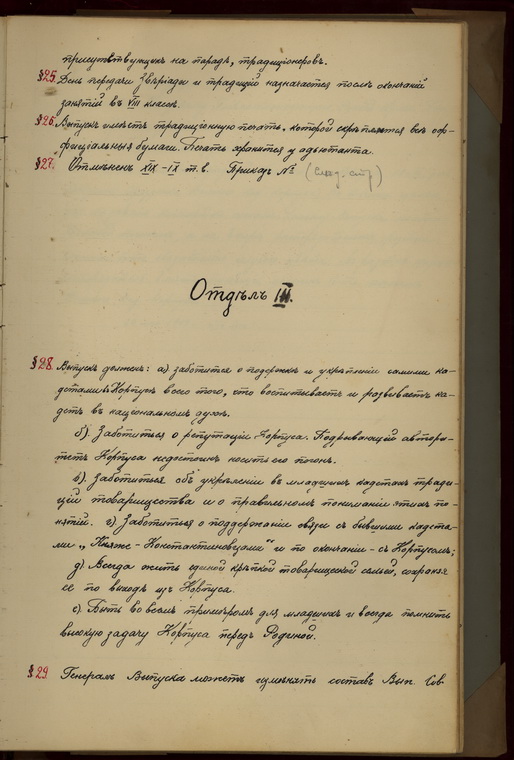 присутствующихъ на парадѣ, традиціонеровъ.
§25. День передачи Звѣріады и традицій назначается послѣ окончанія
занятій въ VIII классѣ.
§26. Выпускъ имѣетъ традиціонную печать, которой скрѣпляются всѣ оф-
фиціальныя бумаги. Печать хранится у адъютанта.
§27. Отмѣненъ XIX-IX т.в. Приказъ № (след. стр)
Отдѣлъ III.
§28. Выпускъ долженъ: а) заботится о подержкѣ и укрѣпленіи самими ка-
детами въ Корпусѣ всего того, что воспитываетъ и развиваетъ ка-
детъ въ національномъ духѣ.
б). Заботиться о репутаціи Корпуса. Подрывающій авторі-
тетъ Корпуса недостоинъ носить его погонъ.
в). Заботиться объ укрѣпленіи въ младшихъ кадетахъ тради-
цій товарищества и о правильномъ пониманіи этихъ по-
нятій. г) Заботиться о поддержаніи связи съ бывшими кадета-
ми „Княже-Константиновцами“ и по окончаніи - съ Корпусомъ;
д) Всегда жить единой крѣпкой товарищеской семьей, сохраняя
ее по выходѣ изъ Корпуса.
е) Быть во всемъ примѣромъ для младшихъ и всегда помнить
высокую задачу Корпуса передъ Родиной.
§29. Генералъ Выпуска можетъ измѣнять составъ Вып. Сов-